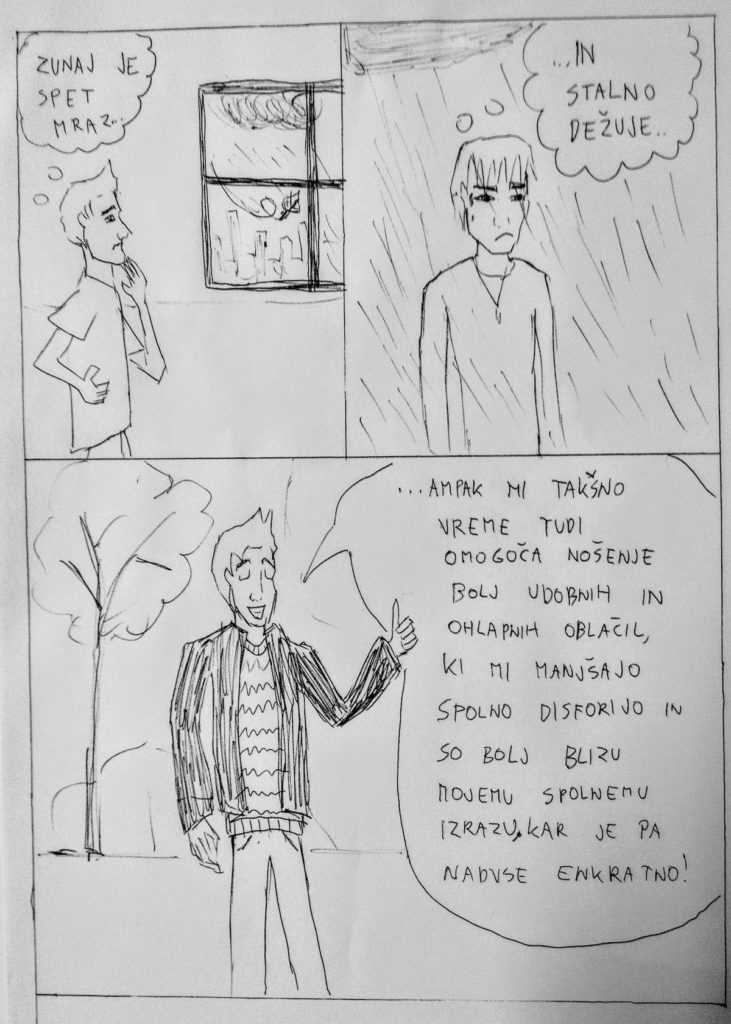 ZUNAJ JE
SPET
MRAZ...
...IN
STALNO
DEŽUJE..
...AMPAK MI TAKŠNO
VREME TUDI
OMOGOČA NOŠENJE
BOLJ UDOBNIH IN
OHLAPNIH OBLAČIL,
KI MI MANJŠAJO
SPOLNO DISFORIJO IN
SO BOLJ BLIZU
MOJEMU SPOLNEMU
IZRAZU, KAR JE PA
NADVSE ENKRATNO!